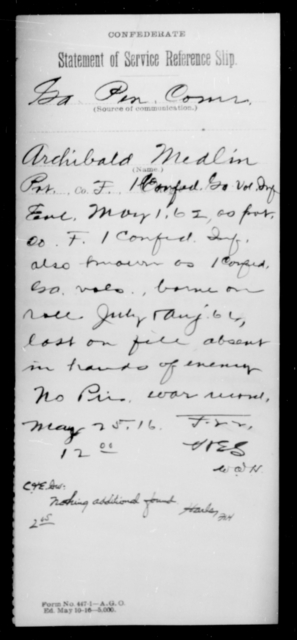 CONFEDERATE
Statement of Service Reference Slip.
Ga. Pen. Comr.
(Source of communication.)
Archibald Medlin
(Name.)
Pvt. Co. F. 1 Confed. Ga Vol. Inf
Enl. May 1, 62, as pvt.
Co. F. 1 Confed. Inf.
also known as 1 Confed.
Ga. vols., borne on
roll July & Aug. 64,
last on file absent
in hands of enemy
No Pris. war record.
May 25. 16.
12 00
Nothing additional found
2 45
Form No. 447-1—A. G. O.
Ed. May 10-16—5,000.